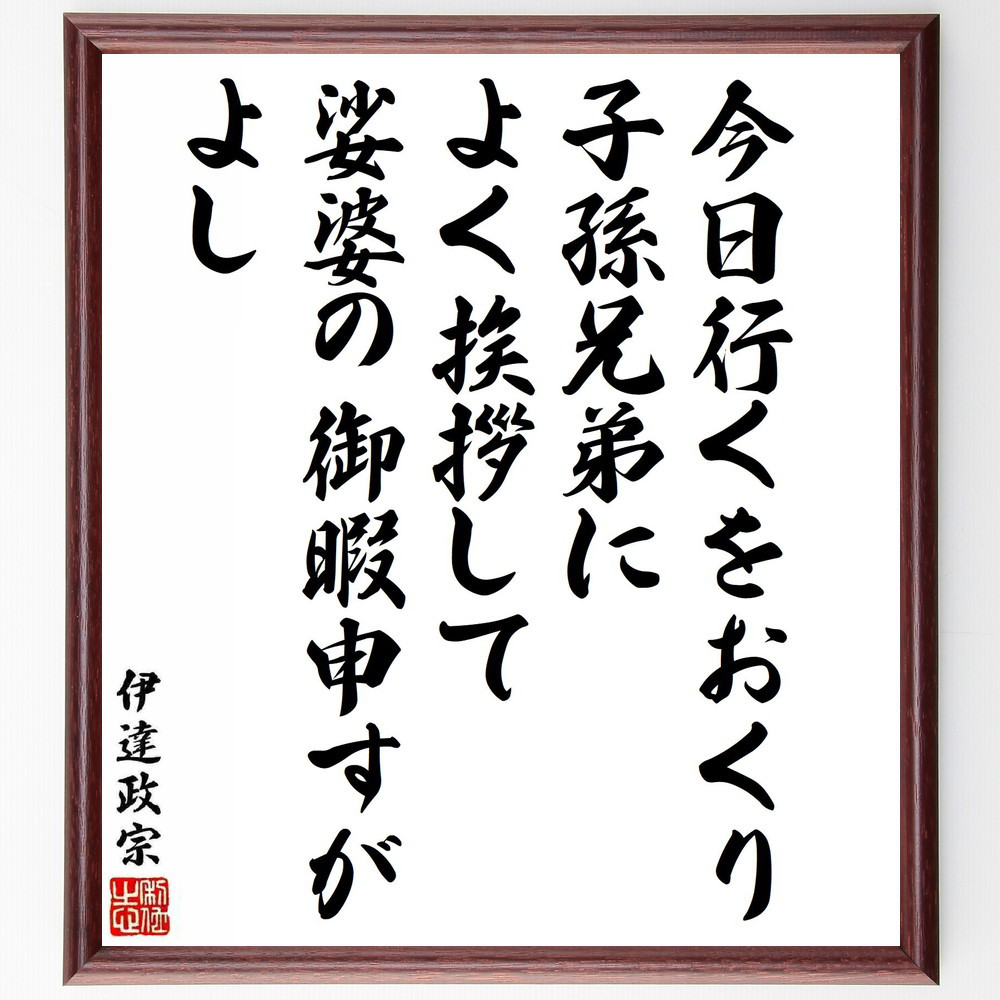 今日行くをおくり
子孫兄弟に
よく挨拶して
娑婆の御暇申すが
よし
伊達政宗